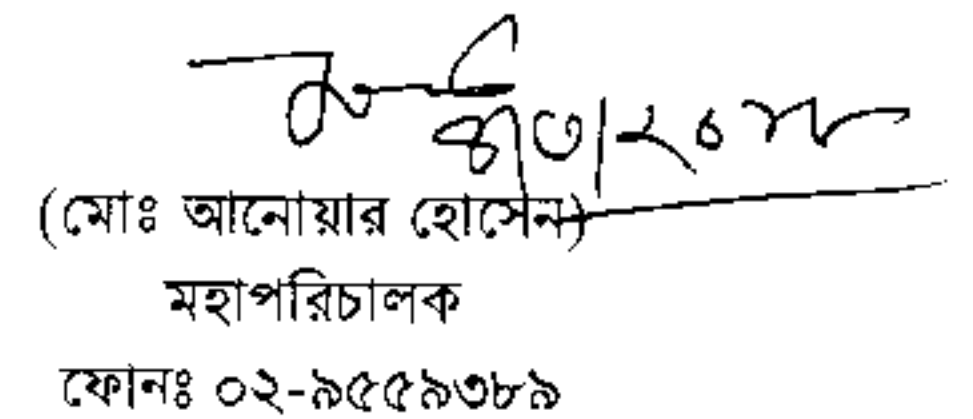 (মোঃ আনোয়ার হোসেন)
মহাপরিচালক
ফোনঃ ০২-৯৫৫৯৩৮৯